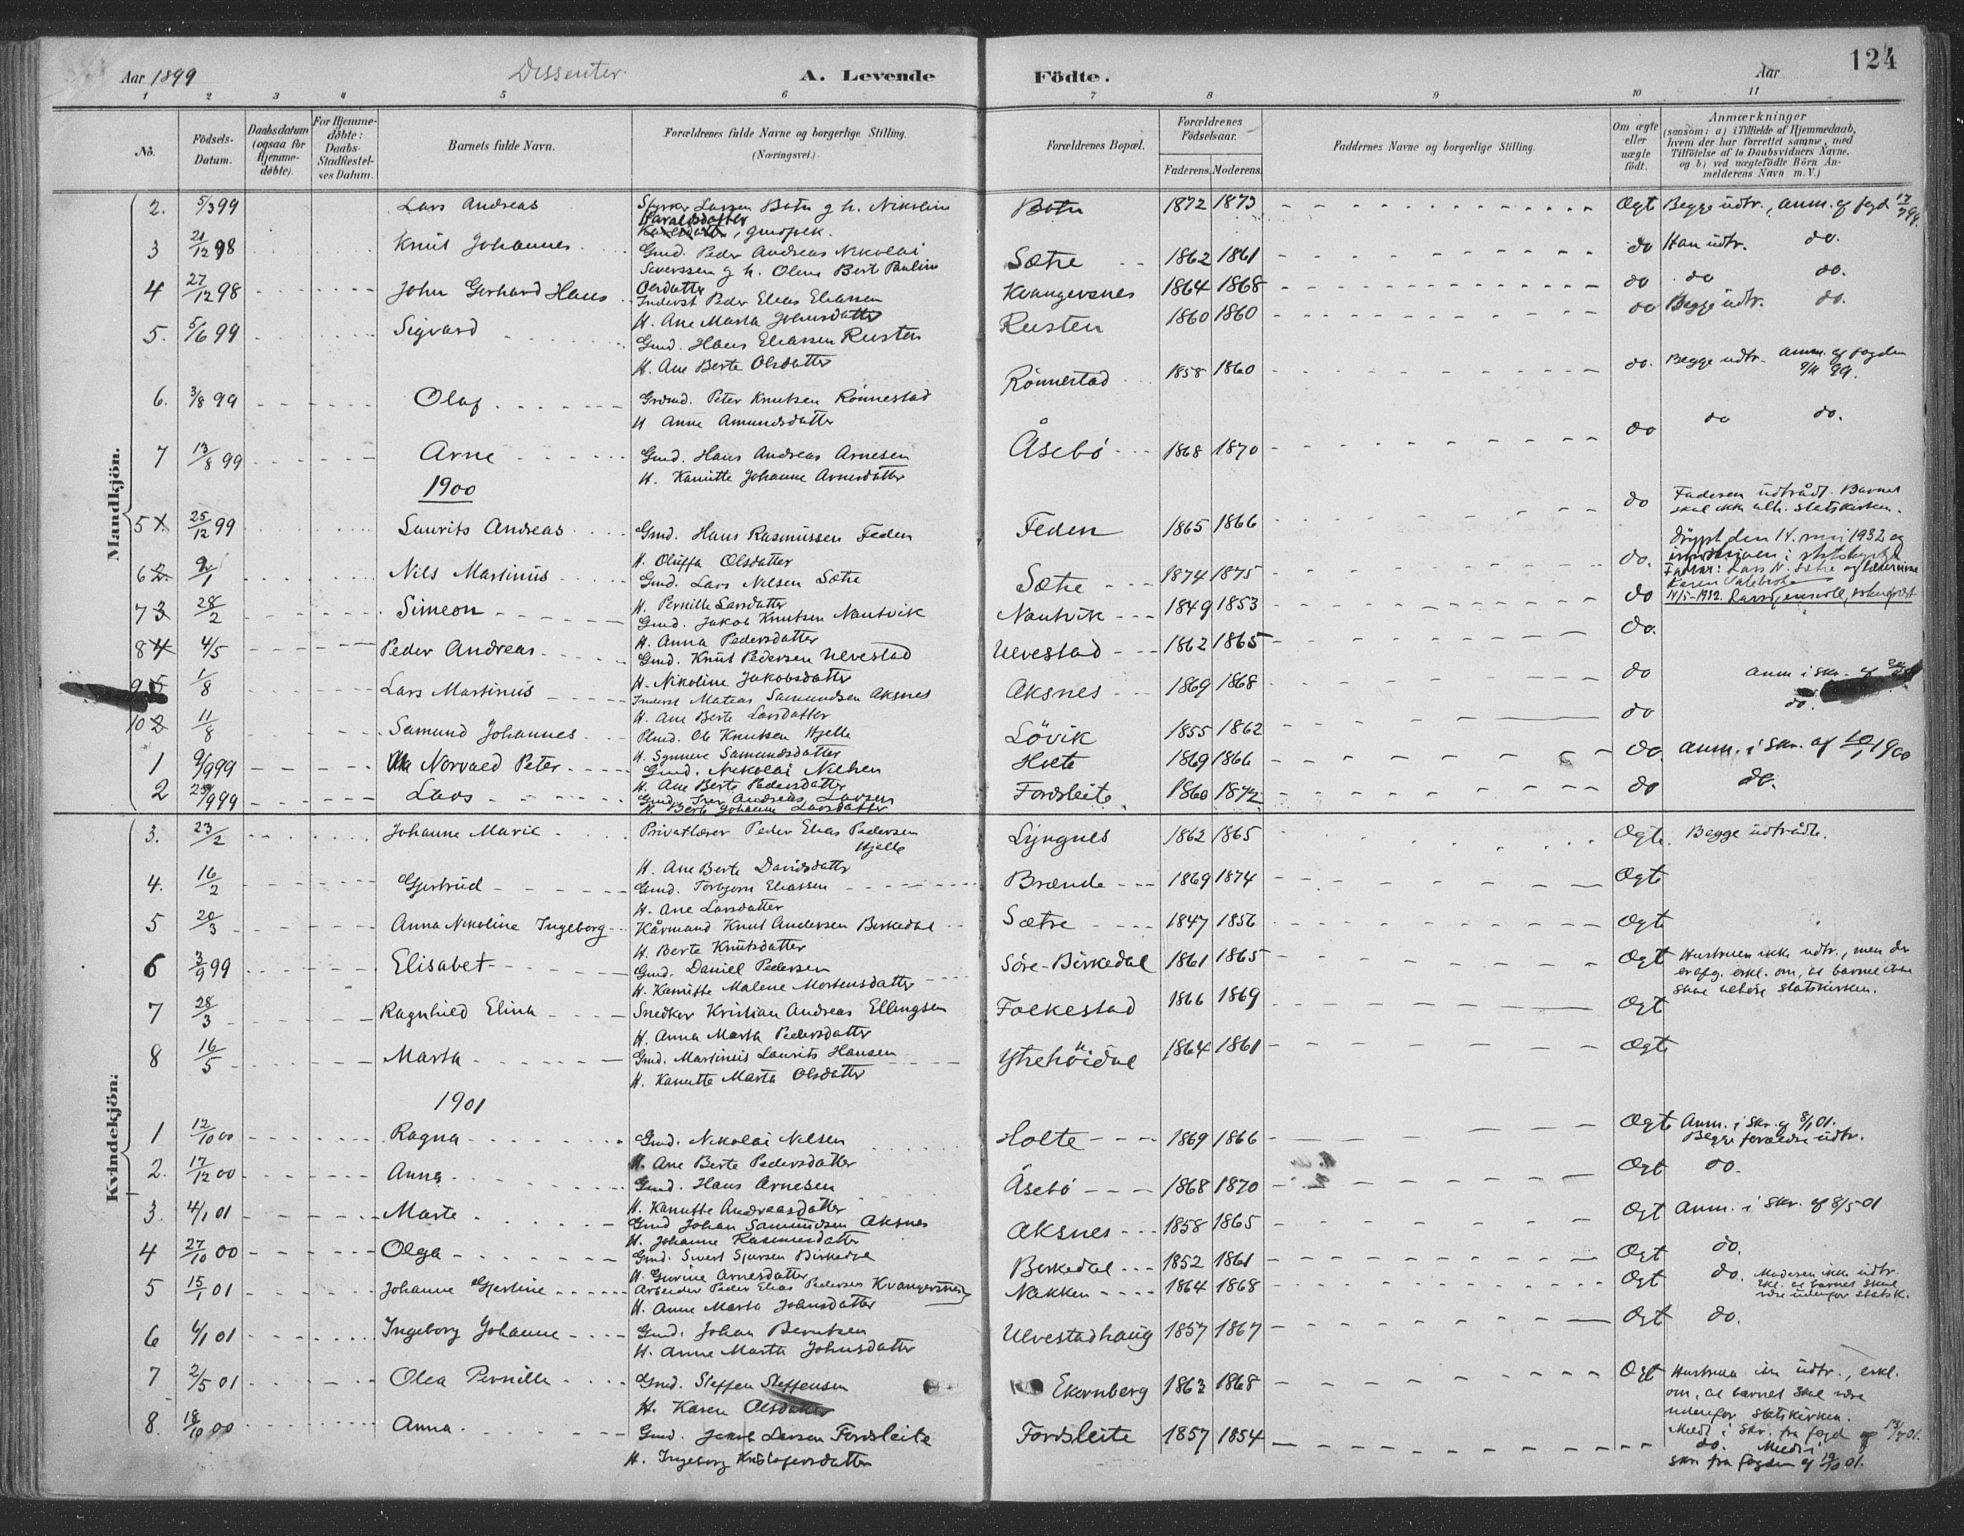 124
Aar 1899 Dissenter. A. Levende Födte. Aar
1 2 3 4 5 6 7 8 9 10 11
No. Födsels-Datum. Daabsdatum (ogsaa for Hjemme-døbte). For Hjemme-døbte: Daabs-Stadfæstel-ses Datum. Barnets fulde Navn. Forældrenes fulde Navne og borgerlige Stilling. (Næringsvei.) Forældrenes Bopæl. Forældrenes Födselsaar. Faderens. Moderens. Faddernes Navne og borgerlige Stilling. Om ægte eller uægte födt. Anmærkninger (saasom: a) i Tilfælde af Hjemmedaab, hvem der har forrettet samme, med Tilföielse af to Daabsvidners Navne, og b) ved uægtefödte Börn Anmelderens Navn m. V.)
Mandkjön.
2. 5/3 99 Lars Andreas Larsen Botn g. h. Nikoline Haraldsdatter Botn 1872 1873 Ægt Begge udtr., anm. af fogd
3 21/12 98 Knut Johannes Gmd. Peder Andreas Nikolai Severssen g. h. Oline Bert Pauline Olsdatter Sætre 1862 1861 do Han udtr. do.
4 27/12 98 John Gerhard Hans Inderst Peder Elias Eliassen H. Ane Marta Johnsdatter Kvangersnes 1864 1868 do do do.
5. 5/6 99 Sigvard Gmd. Hans Eliassen Rusten H. Ane Berte Olsdatter Rusten 1860 1860 do Begge udtr. do.
6. 3/8 99 Olaf Grdmd. Peter Knutsen Rønnestad H Anne Amundsdatter Rönnestad 1858 1860 do. Begge udtr. anm. af fogden 9/11 99.
7 13/8 99 Arne Gmd. Hans Andreas Arnesen H. Kanutte Johanne Arnesdatter Åsebö 1868 1870 do do do.
1900
5 1 25/12 99 Laurits Andreas Gmd. Hans Rasmussen Feden H. Oluffa Olsdatter Feden 1865 1866 do Faderen udtrådt. Barnet skal ikke tilh. statskirken.
6 2 9/1 Nils Martinus Gmd. Lars Nilsen Sætre H. Pernille Larsdatter Sætre 1874 1875 do. Döypt den 14. mai 1932 og
7 3 28/2 Simeon Gmd. Jakob Knutsen Nautvik H. Anna Pedersdatter Nautvik 1849 1853 do
8 4 4/5 Peder Andreas Gmd. Knut Pedersen Ulvestad H. Nikoline Jakobsdatter Ulvestad 1862 1865 do.
9 5 1/8 Lars Martinus Inderst Matias Samundsen Aksnes H. Ane Berte Larsdatter Aksnes 1869 1868 do Anm i skr. af
10 2 11/8 Samund Johannes Ole Knutsen Hjelle H. Synneve Samundsdatter Lövik 1855 1862 do do.
1 9/9 99 Norvald Peter Gmd. Nikolai Nilsen H. Ane Berte Pedersdatter Holte 1869 1866 do. anm. i skr. af 10/1 1900
2 /9 99 Lars Gmd. Iver Andreas Larsen H. Berte Johanne Larsdatter Fordsleite 1860 1872 do do.
Kvindekjön:
3. 23/2 Johanne Marie Privatlærer Peder Elias Pedersen Hjelle H. Ane Berte Davidsdatter Lyngnes 1862 1865 Ægte. Begge udtrådte.
4. 16/2 Gjertrud Gmd. Torbjørn Eliassen H. Ane Larsdatter Brænde 1869 1874 Ægte
5 20/3 Anna Nikoline Ingeborg Kårmand Knut Andersen Birkedal H. Berte Knutsdatter Sætre 1847 1856 Ægte
6 3/9 99 Elisabet Gmd. Daniel Pedersen H. Kanutte Malene Mortensdatter Söre-Birkedal 1861 1865 Ægt Hustruen ikke udtr., men der er afg. erkl. om, at barnet ikke skal tilhøre statskirken.
7 28/3 Ragnhild Elina Snedker Kristian Andreas Ellingsen H. Anna Marta Pedersdatter Folkestad 1866 1869 Ægt
8 16/5 Marta Gmd. Martinus Laurits Hansen H. Kanutte Marta Olsdatter Ytrehöidal 1864 1861 Ægt
1901
1 12/10 00 Ragna Gmd. Nikolai Nilsen H. Ane Berte Pedersdatter Holte 1869 1866 Ægt Anm. i skr. af 8/1 01. Begge forældre udtr.
2. 17/12 00 Anna Gmd. Hans Arnesen H. Kanutte Andreasdatter Åsebö 1868 1870 Ægt do.
3. 4/1 01 Marte Gmd Johan Samundsen Aksnes H. Johanne Rasmusdatter Aksnes 1858 1865 Ægt Anm. i skr. af 8/5 01
4 27/10 00 Olga Gmd. Sivert Sjursen Birkedal H. Gurine Arnesdatter Birkedal 1852 1861 Ægt do.
5 15/1 01 Johanne Gjertine Arbeider Peder Elias Pedersen Kvangersnes H. Anne Marta Johnsdatter Nakken 1864 1868 Ægt do. Moderen ikke udtr. Erkl. at barnet skal være udenfor statsk.
6 6/1 01 Ingeborg Johanne Gmd. Johan Berntsen H. Anne Marta Johnsdatter Ulvestadhaug 1857 1867 Ægt do.
7 2/5 01 Olea Pernille Gmd. Steffen Steffensen H. Karen Olsdatter Ekornberg 1863 1868 Ægt Hustruen ikke udtr., erkl. om, at barnet skal være udenfor statskirken. Meddl i skr. fra fogd
8. 18/10 00 Anna Gmd. Jakob Larsen Fordsleite H. Ingeborg Kristofersdatter Fordsleite 1857 1854 do. Meddl i skr. fra fogden af 19/10 01.